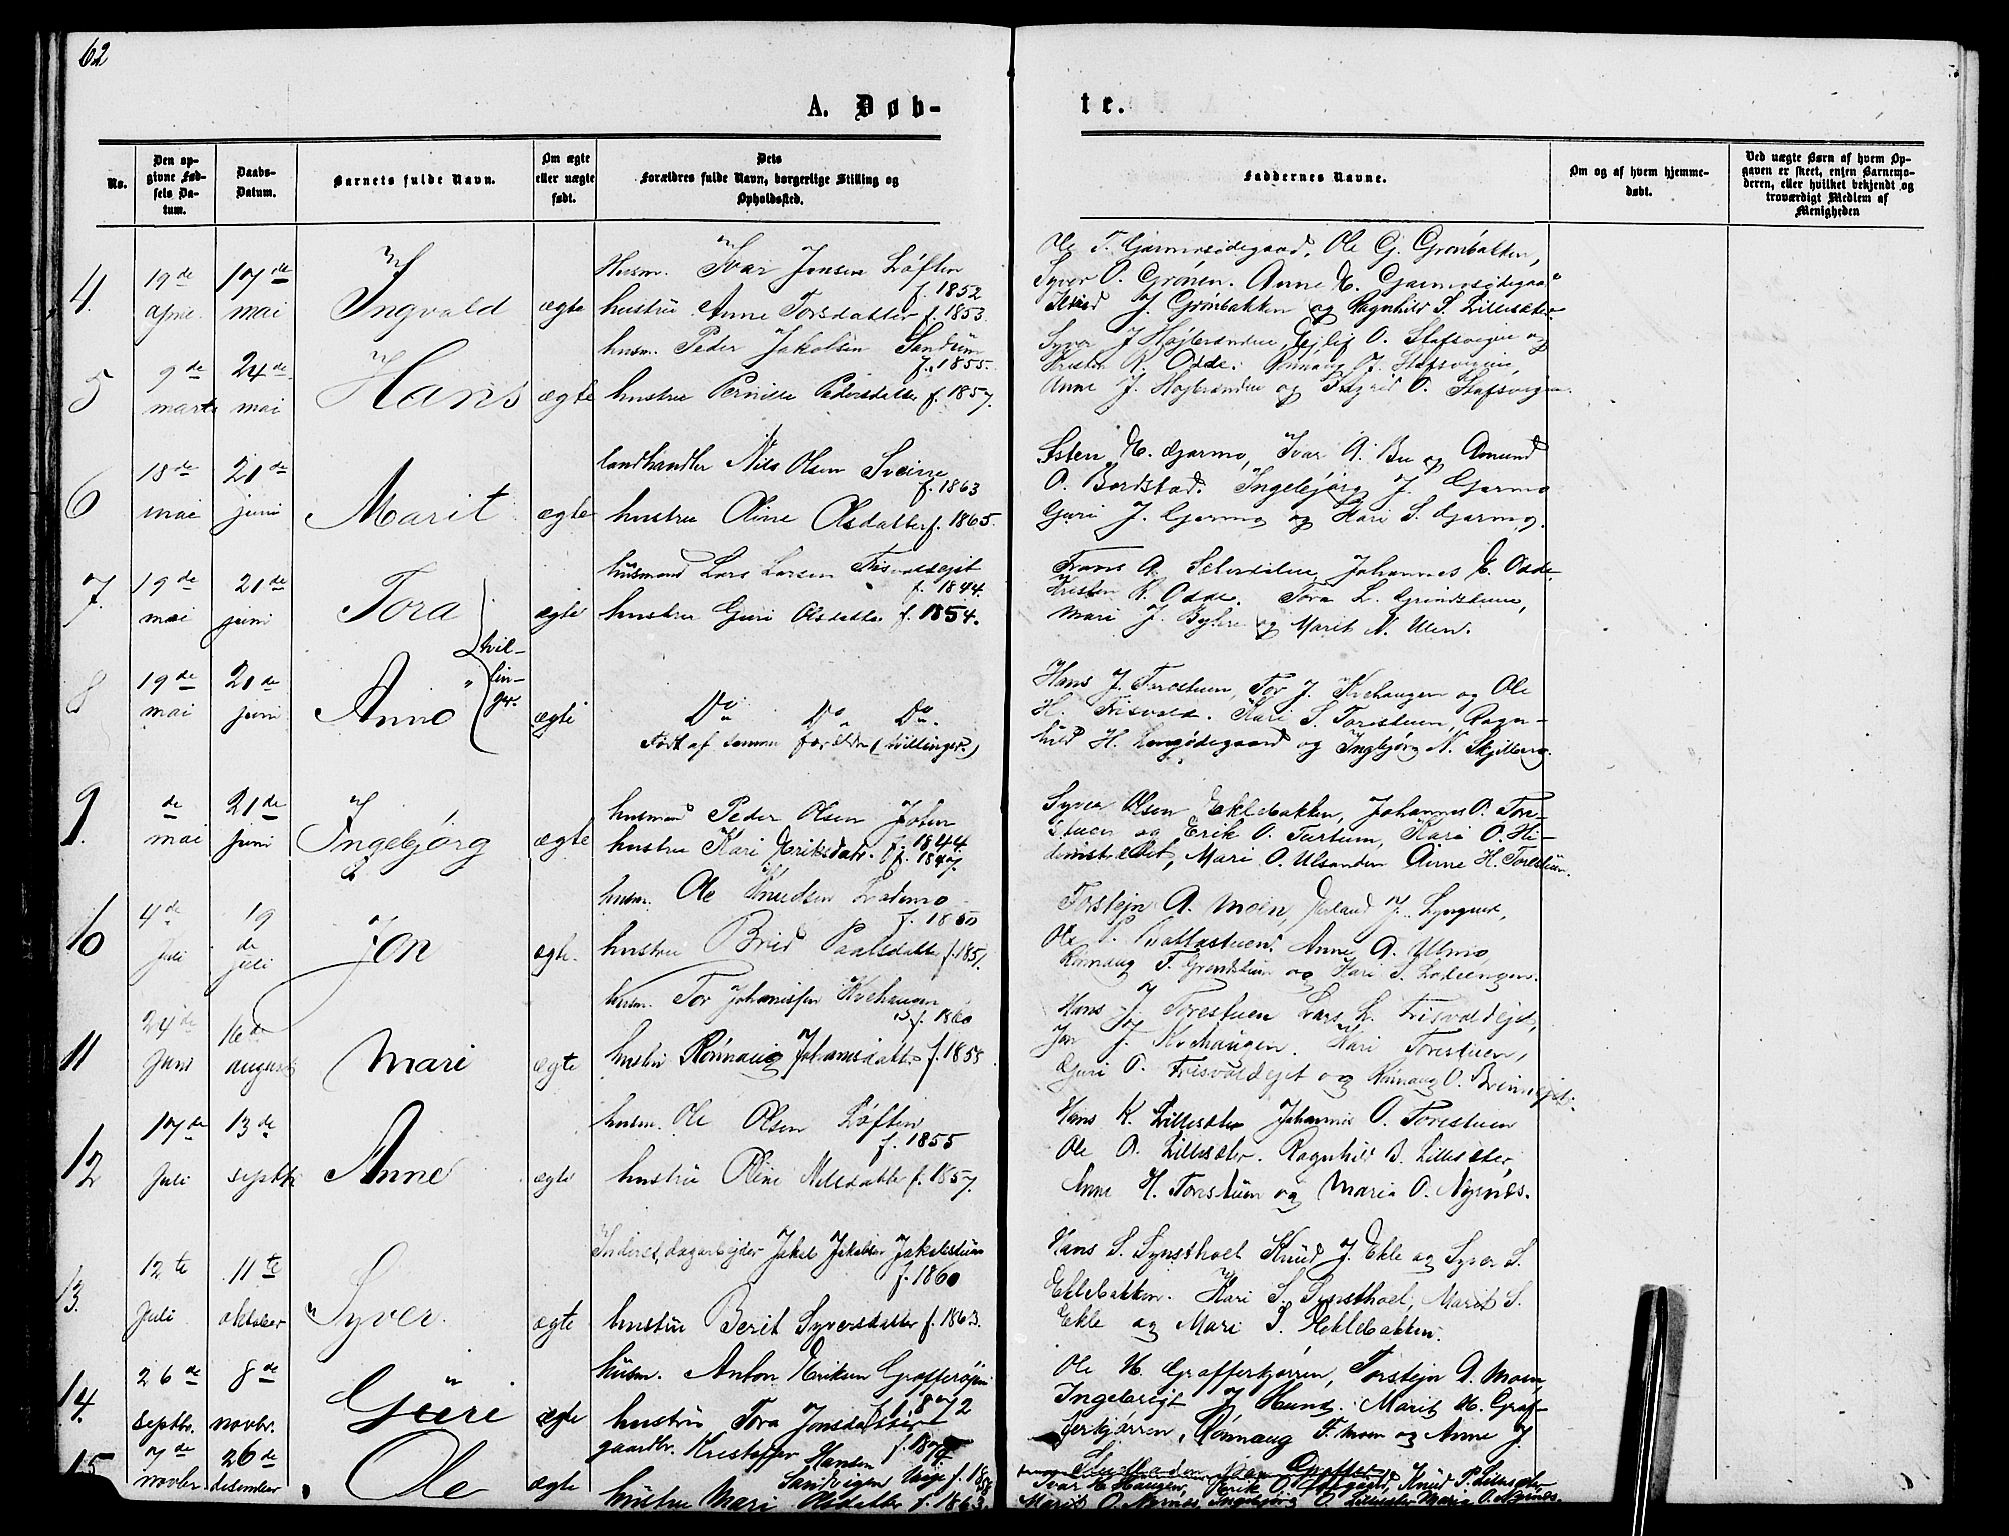 62
A. Døb-
te.
No.
Den op-
givne Fød-
sels Da-
tum.
Daabs-
Datum.
Barnets fulde Navn.
Om ægte
eller uægte
født.
Dets
Forældres fulde Navn, borgerlige Stilling og
Opholdssted.
Faddernes Navne.
Om og af hvem hjemme-
døbt.
Ved uægte Børn af hvem Op-
gaven er skeet, enten Barnemo-
deren, eller hvilket bekjendt og
troværdigt Medlem af
Menigheden
4.
19de
april
17de
mai
Ingvald
ægte
Husm. Ivar Jonsen Løften
f. 1852
hustru Anne Torsdatter f. 1853.
Ole T. Garmosødegaard, Ole G. Grønbakken,
Syver O. Grønen. Anne E. Garmosødegaa
J. Grønbakken og Ragnhild S. Lillesæter
5
9de
marts
24de
mai
Hans
ægte
husm. Peder Jakobsen Sandum
f. 1855.
hustru Pernille Pedersdatter f. 1857.
Syver J. Højbrænden, Ejlif O. Stafsvigen og
Kristen R. Odde. Rønnaug J. Stafsvigen,
Anne J. Højbrænden og Sigrid O. Stafsvigen.
6
18de
mai
21de
juni
Marit
ægte
landhandler Nils Olsen Sveine
f. 1863
hustru Oline Olsdatter f. 1865.
Østen E. Garmo, Ivar A. Bu og Amund
O. Bordstad. Ingebjørg J. Garmo
Guri J. Garmo og Kari S. Garmo.
7.
19de
mai
21de
juni
Tora
tvil-
lin-
ger
ægte
husmand Lars Larsen Frisvoldejet
f. 1844.
hustru Guri Olsdatter f. 1854.
Frans A. Johannes E. Odde
Kristen R. Odde. Tora L. Grindstuen,
Mari J. og Marit N. Ulen.
8
19de
mai
21de
juni
Anne
ægte
Do Do Do.
Født af samme forældre (tvillinger.)
Hans J. Torestuen, Tor J. Kvehaugen og Ole
H. Frisvold. Kari S. Torestuen, Ragn-
hild H. Longødegaard og Ingebjørg N.
9.
de
mai
21de
juni
Ingebjørg
ægte
husmand Peder Olsen
f. 1844
hustru Kari Eriksdatr. f. 1847.
Syver Olsen Eklebakken, Johannes O. Tore-
stuen og Erik O. Kari O.
Mari O. Ulsanden Anne H. Torestuen.
10
4de
Juli
19
de
juli
Jon
ægte.
husm. Ole Knudsen
f. 1850
hustru Brit Paalsdatter f. 1851.
Torstejn A. Moen, Erland J.
Ole P. Anne A. Ulmo,
Rønnaug T. og Kari S.
11
24de
Juni
16de
august
Mari
ægte
husm. Tor Johannesen Kvehaugen
f. 1860
hustru Rønnaug Johansdatter f. 1858
Hans J. Torestuen Lars L. Frisvoldejet,
Jon J. Kvehaugen. Kari Torestuen,
Guri O. Frisvoldejet og Rønnaug O.
12
17de
Juli
13de
septbr
Anne
ægte
husm. Ole Olsen Løften
f. 1855
hustru Oline Nilsdatter f. 1857.
Hans K. Lillesæter Johannes O. Torestuen
Ole R. Lillesæter. Ragnhild B. Lillesæter,
Anne H. Torestuen og Maria O. Nyenes.
13.
12te
Juli
11te
oktober
Syver
ægte
Inderst, dagarbejder Jakob Jakobsen Jakobstuen
f. 1860
hustru Berit Syversdatter f. 1863.
Hans S. Synsthoel Knud J. Ekle og Syver S.
Eklebakken. Kari S. Synsthoel, Marit S.
Ekle og Mari S. Eklebakken.
14.
26de
septbr.
8de
novbr.
Guri
ægte
husm. Anton Eriksen
f. 1872
hustru Tora Jonsdatter
Ole H. Grafferkjørren, Torstejn A. Moen,
Ingebrigt J. Hund. Marit H. Graf-
ferkjørren, Rønnaug T. Moen og Anne J.
15
7de
novbr
26de
desember
Ole
ægte
gaardbr. Kristoffer Hansen
Sandvigen Vaage
hustru Mari Olsdatter f. 1863
Ivar H. Haugen, Erik O. Knud P. Lillesæter
Marit O. Nyenes, Ingebjørg O. Lillesæter Maria O. Nyenes.